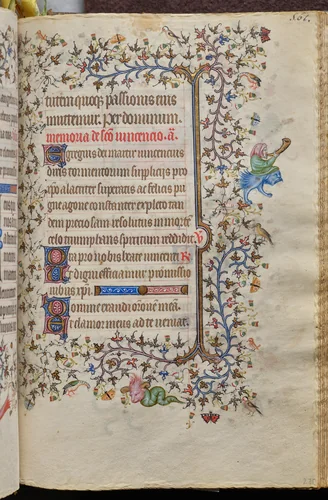 tutem quoqz passionis eius
mittentur. Per dominum.
memoria de sco vincencio. a.
Egregius dei martir vincencius
diris tormentorum supplicijs pro
xpo alacriter superatis ac felicis pu
gne agone constanter expleto tan
dem preciosam resolutus in morte
celo triumphans spiritum reddidit. V
Ora pro nobis beate vincenti R
Et digni efficiamur promissio
nibus xpi.
Domine exaudi orõnẽ meã
Et clamor meus ad te veniat